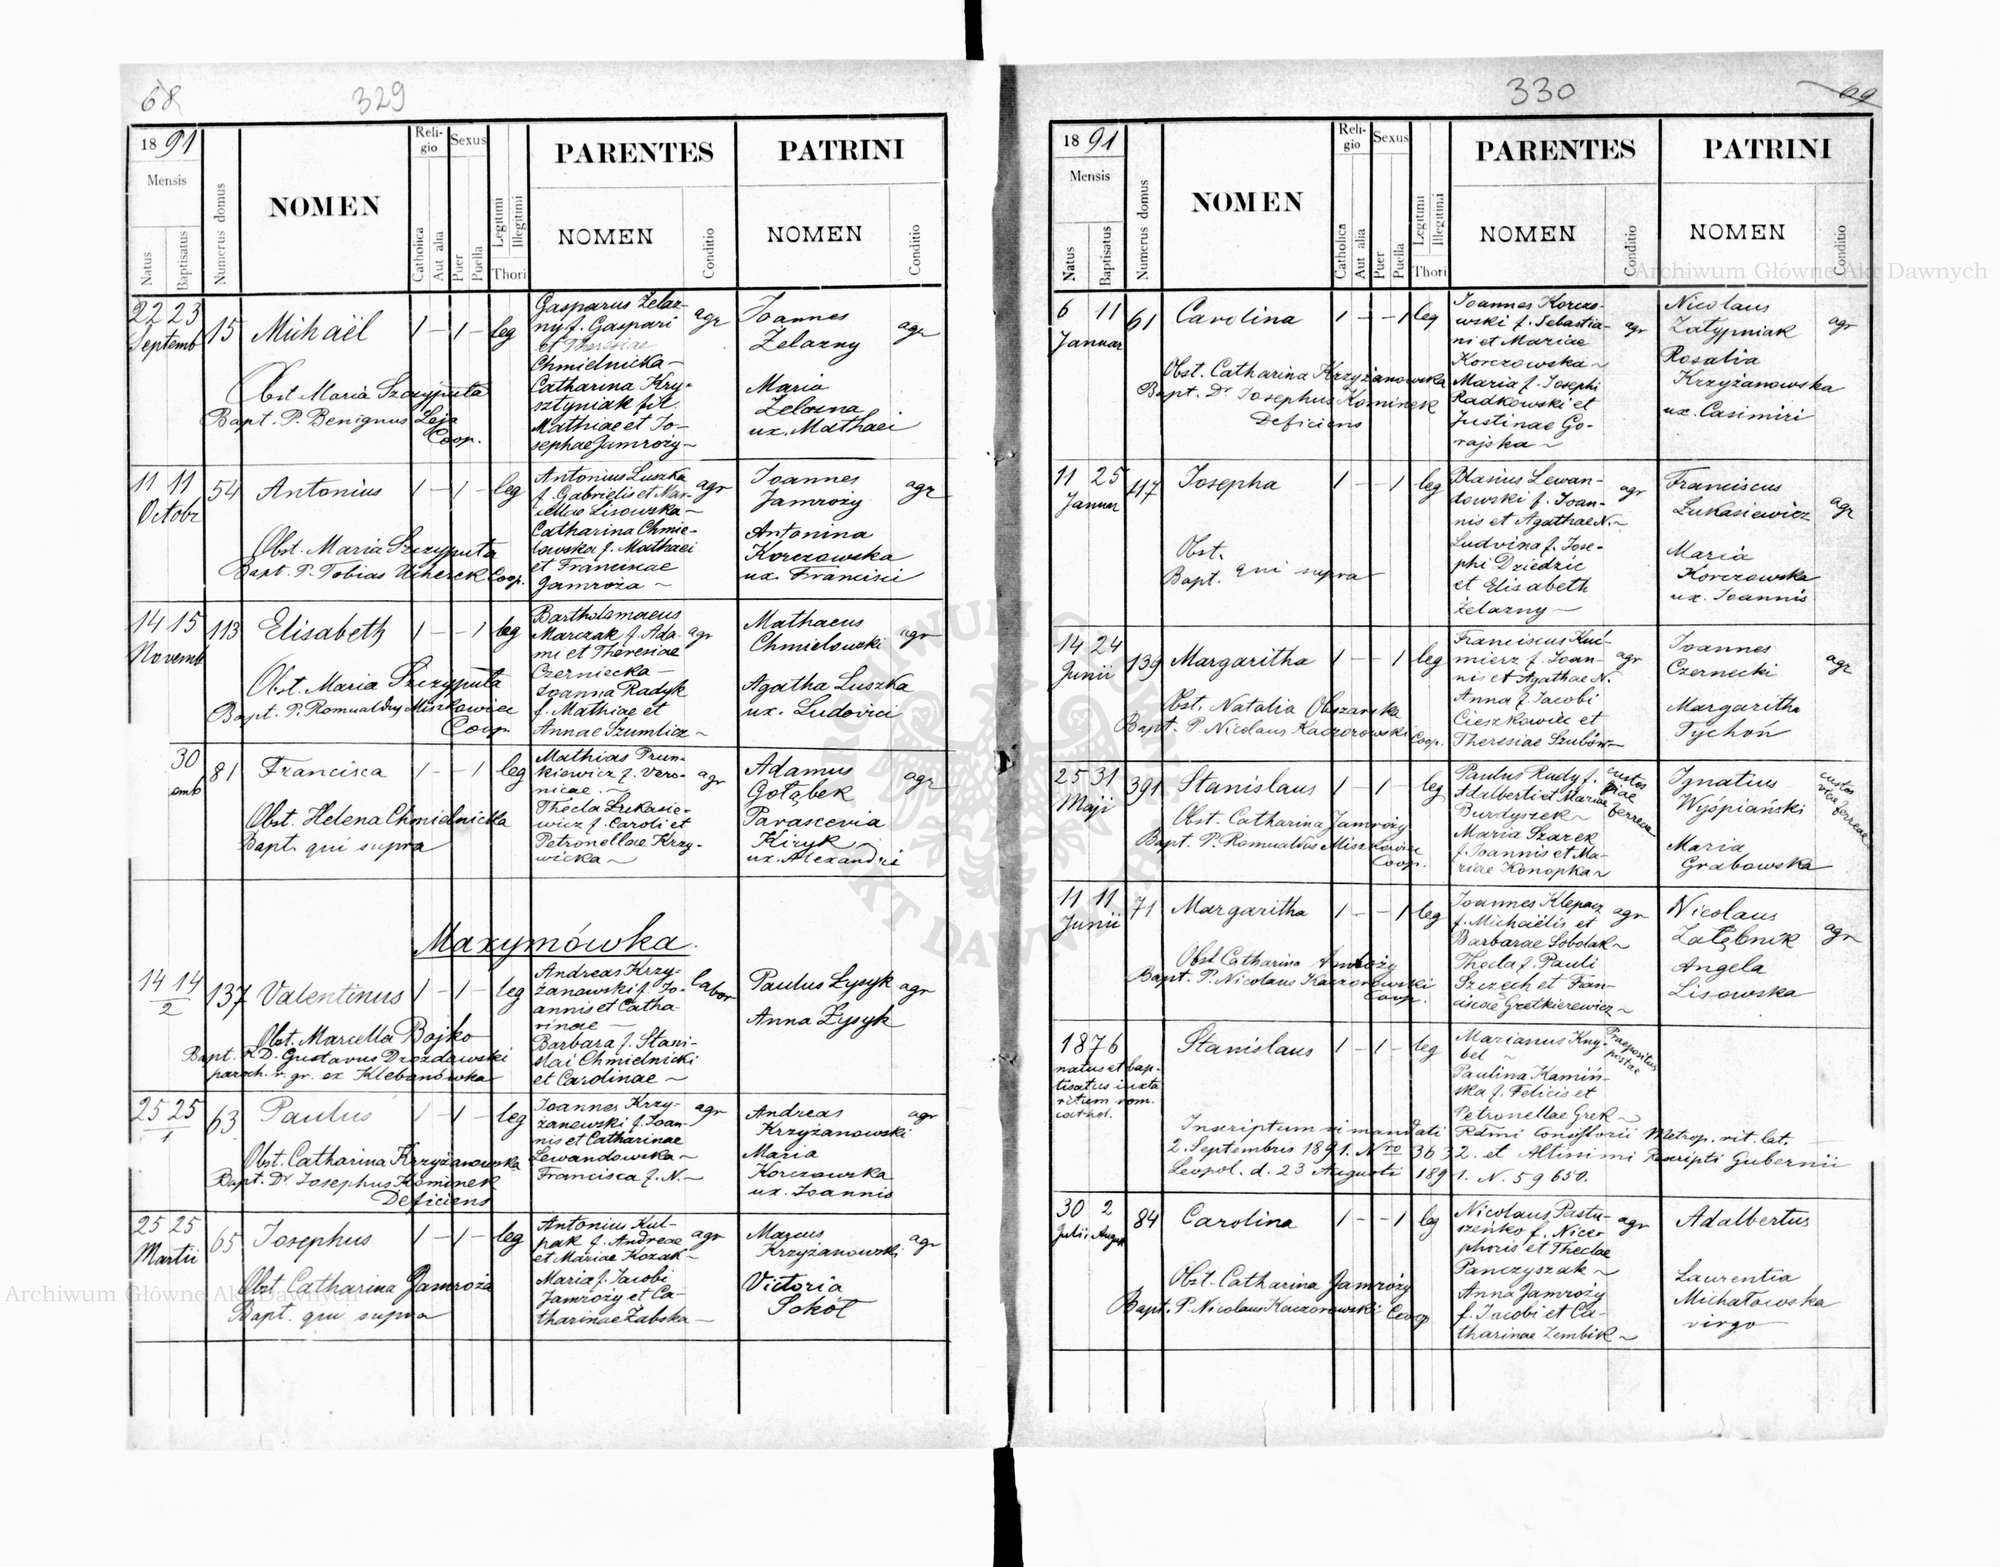 68 329
18 91
Mensis
Natus
Baptisatus
Numerus domus
NOMEN
Religio
Catholica
Aut alia
Sexus
Puer
Puella
Legitimi
Illegitimi
Thori
PARENTES
NOMEN
Conditio
PATRINI
NOMEN
Conditio
22 23
Septemb
15
Michaël
1 – 1 – leg
Gasparus Żelaz-
ny f. Gaspari
et Theresiae
Chmielnicka ~
Catharina Kry-
sztyniak fil.
Mathiae et Jo-
sephae Jamroży ~
agr
Joannes
Żelazny
agr
Maria
Żelazna
ux. Mathaei
Obst. Maria Szczyputa
Bapt. P. Benignus Leja
Coop.
11 11
Octobr
54
Antonius
1 – 1 – leg
Antonius Luszka
f. Gabrielis et Mar-
Lisowska ~
Catharina Chmie-
lowska f. Mathaei
et Franciscae
Jamroża ~
agr
Joannes
Jamroży
agr
Antonina
Korczowska
ux. Francisci
Obst. Maria Szczyputa
Bapt. P. Tobias Coop.
14 15
Novemb
113
Elisabeth
1 – – 1 leg
Bartholomaeus
Marczak f. Ada-
mi et Theresiae
Czerniecka ~
Joanna Radyk
f. Mathiae et
Annae Szumlicz ~
agr
Mathaeus
Chmielowski
agr
Agatha Luszka
ux. Ludovici
Obst. Maria Szczyputa
Bapt. P. Romualdus Miszkowicz
Coop.
30
emb
81
Francisca
1 – – 1 leg
Mathias Prun-
kiewicz f. Vero-
nicae. ~
Thecla Łukasie-
wicz f. Caroli et
Petronellae Krzy-
wicka ~
agr
Adamus
Gołąbek
agr
Parascevia
Kizyk ~
ux. Alexandri
Obst. Helena Chmielnicka
Bapt. qui supra
Maxymówka.
14 14
2
137
Valentinus
1 – 1 – leg
Andreas Krzy-
żanowski f. Jo-
annis et Catha-
rinae ~
Barbara f. Stani-
slai Chmielnicki
et Carolinae ~
labor
Paulus Łysyk agr
Anna Łysyk
Obst. Marcella Bojko
Bapt. R.D. Gustavus Drozdowski
paroch. r. gr. ex Klebanówka
25 25
1
63
Paulus
1 – 1 – leg
Joannes Krzy-
żanowski f. Joan-
nis et Catharinae
Lewandowska ~
Francisca f. N. ~
agr
Andreas
Krzyżanowski
agr
Maria
Korczowska
ux. Joannis
Obst. Catharina Krzyżanowska
Bapt. Dr Josephus Kominek
Deficiens
25 25
Martii
65
Josephus
1 – 1 – leg
Antonius Kul-
pak f. Andreae
et Mariae Kozak ~
Maria f. Jacobi
Jamroży et Ca-
tharinae Żabska ~
agr
Marcus
Krzyżanowski
agr
Victoria
Sokół
Obst. Catharina Jamroża
Bapt. qui supra
330 69
18 91
Mensis
Natus
Baptisatus
Numerus domus
NOMEN
Religio
Catholica
Aut alia
Sexus
Puer
Puella
Legitimi
Illegitimi
Thori
PARENTES
NOMEN
Conditio
PATRINI
NOMEN
Conditio
6 11
Januar
61
Carolina
1 – – 1 leg
Joannes Korczo-
wski f. Sebastia-
ni et Mariae
Korczowska ~
Maria f. Josephi
Radkowski et
Justinae Go-
rajska ~
agr
Nicolaus
Zatypniak
agr
Rosalia
Krzyżanowska
ux. Casimiri
Obst. Catharina Krzyżanowska
Bapt. Dr Josephus Kominek
Deficiens
11 25
Januar
117
Josepha
1 – – 1 leg
Blasius Lewan-
dowski f. Joan-
nis et Agathae N. ~
Ludvina f. Jose-
phi Dziedzic
et Elisabeth
Żelazny ~
agr
Franciscus
Łukasiewicz
agr
Maria
Korczowska
ux. Joannis
Obst.
Bapt. qui supra
14 24
Junii
139
Margaritha
1 – – 1 leg
Franciscus Kuś-
mierz f. Joan-
nis et Agathae N.
Anna f. Jacobi
Cieszkowicz et
Theresiae Szubów ~
agr
Joannes
Czernecki
agr
Margaritha
Tychoń
Obst. Natalia Obszarska
Bapt. P. Nicolaus Kaczorowski Coop.
25 31
Maji
391
Stanislaus
1 – 1 – leg
Paulus Rudy f.
Adalberti et Mariae
Burdyszek ~
Maria Szarek
f. Joannis et Ma-
riae Konopka ~
custos
viae
ferreae
Ignatius
Wyspiański
custos
viae ferreae
Maria
Grabowska
Obst. Catharina Jamroży
Bapt. P. Romualdus Miszkowicz
Coop.
11 11
Junii
71
Margaritha
1 – – 1 leg
Joannes Klepacz
f. Michaëlis et
Barbarae Sobolak ~
Thecla f. Pauli
Szczech et Fran-
ciscae Gretkierewicz ~
agr
Nicolaus
Załębnik
agr
Angela
Lisowska
Obst Catharina Jamroży
Bapt. P. Nicolaus Kaczorowski
Coop.
1876
natus et bap-
tisatus iuxta
ritum rom.
cathol.
Stanislaus
1 – 1 – leg
Marianus Kny-
bel ~
Paulina Kamiń-
ska f. Felicis et
Petronellae Grek ~
Praepositus
postae
Inscriptum vi mandati Rdmi Consistorii Metrop. rit. lat.
2. Septembris 1891. Nro 3632. et Altissimi Rescripti Gubernii
Leopol. d. 23 Augusti 1891. N. 59650.
30 2
Julii August
84
Carolina
1 – – 1 leg
Nicolaus Pastu-
szeńko f. Nice-
phoris et Theclae
Panczyszak ~
Anna Jamroży
f. Jacobi et Ca-
tharinae Zembik ~
agr
Adalbertus
Laurentia
Michałowska
virgo
Obst. Catharina Jamroży
Bapt. P. Nicolaus Kaczorowski Coop
Archiwum Główne Akt Dawnych
Archiwum Główne Akt Dawnych
ARCHIWUM GŁÓWNE AKT DAWNYCH